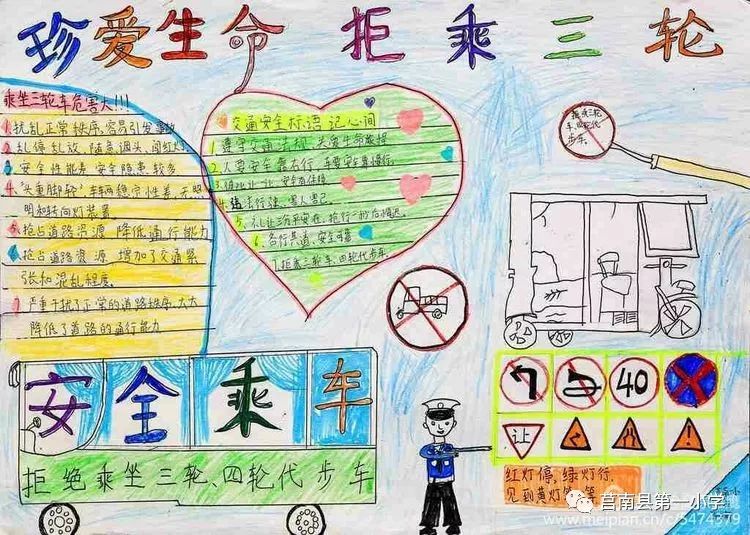 珍爱生命 拒乘三轮
乘坐三轮车危害大!!!
1、扰乱正常秩序,容易引发事故
2、乱停乱放、随意调头、闯红灯
3、安全性能差,安全隐患较多
4、"头重脚轻"车辆稳定性差,无照
明和转向灯装置
5、抢占道路资源 降低通行能力
6、抢占道路资源 增加了交通紧
张和混乱程度.
7、严重干扰了正常的道路秩序,大大
降低了道路的通行能力
交通安全标语 记心间
1、遵守交通法规,关爱生命旅程
2、人要安全靠右行,车要安全慢行
4、违法行驶、害人害己
5、礼让三分平安在,抢行一秒
6、各行其道,安全可靠
7、拒乘三轮车、四轮代步车.
拒乘三轮
车、四轮代
步车.
40
让
安全乘车
拒绝乘坐三轮、四轮代步车
红灯停,绿灯行,
见到黄灯 等
莒南县第一小学
www.meipian.cn/c/5474379